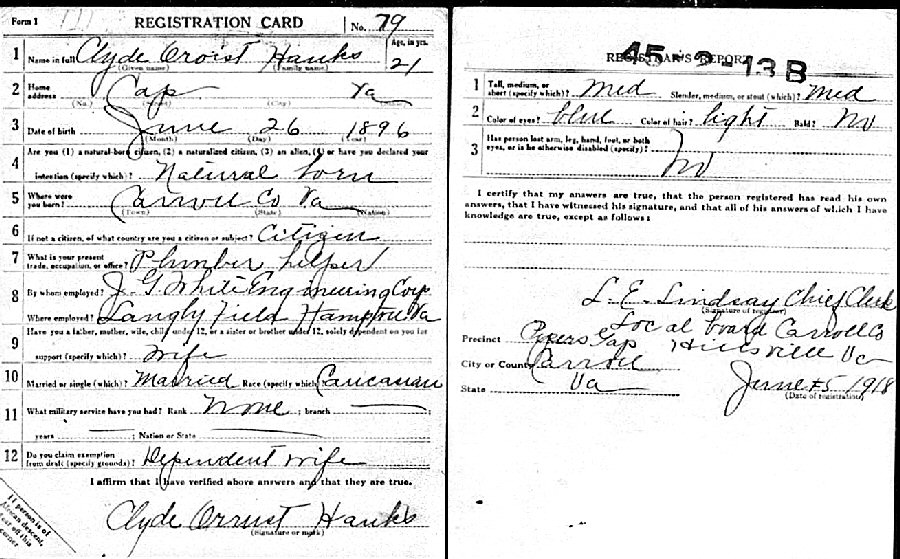 Form 1 REGISTRATION CARD No. 79
1 Name in full Clyde Croist Hanks Age, in yrs. 21
(Given name) (Family name)
2 Home address Cap Va
(No.) (Street) (City)
3 Date of birth June 26 1896
(Month) (Day) (Year)
4 Are you (1) a natural-born citizen, (2) a naturalized citizen, (3) an alien, (4) or have you declared your
intention (specify which)? Natural born
5 Where were you born? Carroll Co Va
(Town) (State) (Nation)
6 If not a citizen, of what country are you a citizen or subject? Citizen
7 What is your present trade, occupation, or office? Plumber helper
8 By whom employed? J. G. White Engineering Corp
Where employed? Langly Field Hampton Va
9 Have you a father, mother, wife, child under 12, or a sister or brother under 12, solely dependent on you for
support (specify which)? Wife
10 Married or single (which)? Married Race (specify which)? Caucasian
11 What military service have you had? Rank None ; branch ;
years ; Nation or State
12 Do you claim exemption from draft (specify grounds)? Dependent wife
I affirm that I have verified above answers and that they are true.
Clyde Orrust Hanks
(Signature or mark)
If person is of
African descent,
tear off this
corner
45-3-13B
REGISTRAR'S REPORT
1 Tall, medium, or short (specify which)? Med Slender, medium, or stout (which)? Med
2 Color of eyes? blue Color of hair? light Bald? No
3 Has person lost arm, leg, hand, foot, or both
eyes, or is he otherwise disabled (specify)?
No
I certify that my answers are true, that the person registered has read his own
answers, that I have witnessed his signature, and that all of his answers of which I have
knowledge are true, except as follows:
L. E. Lindsay Chief Clerk
(Signature of registrar)
Local board Carroll Co
Precinct Pipers Gap Hillsville Va
City or County Carroll
State Va June 5 1918
(Date of registration)